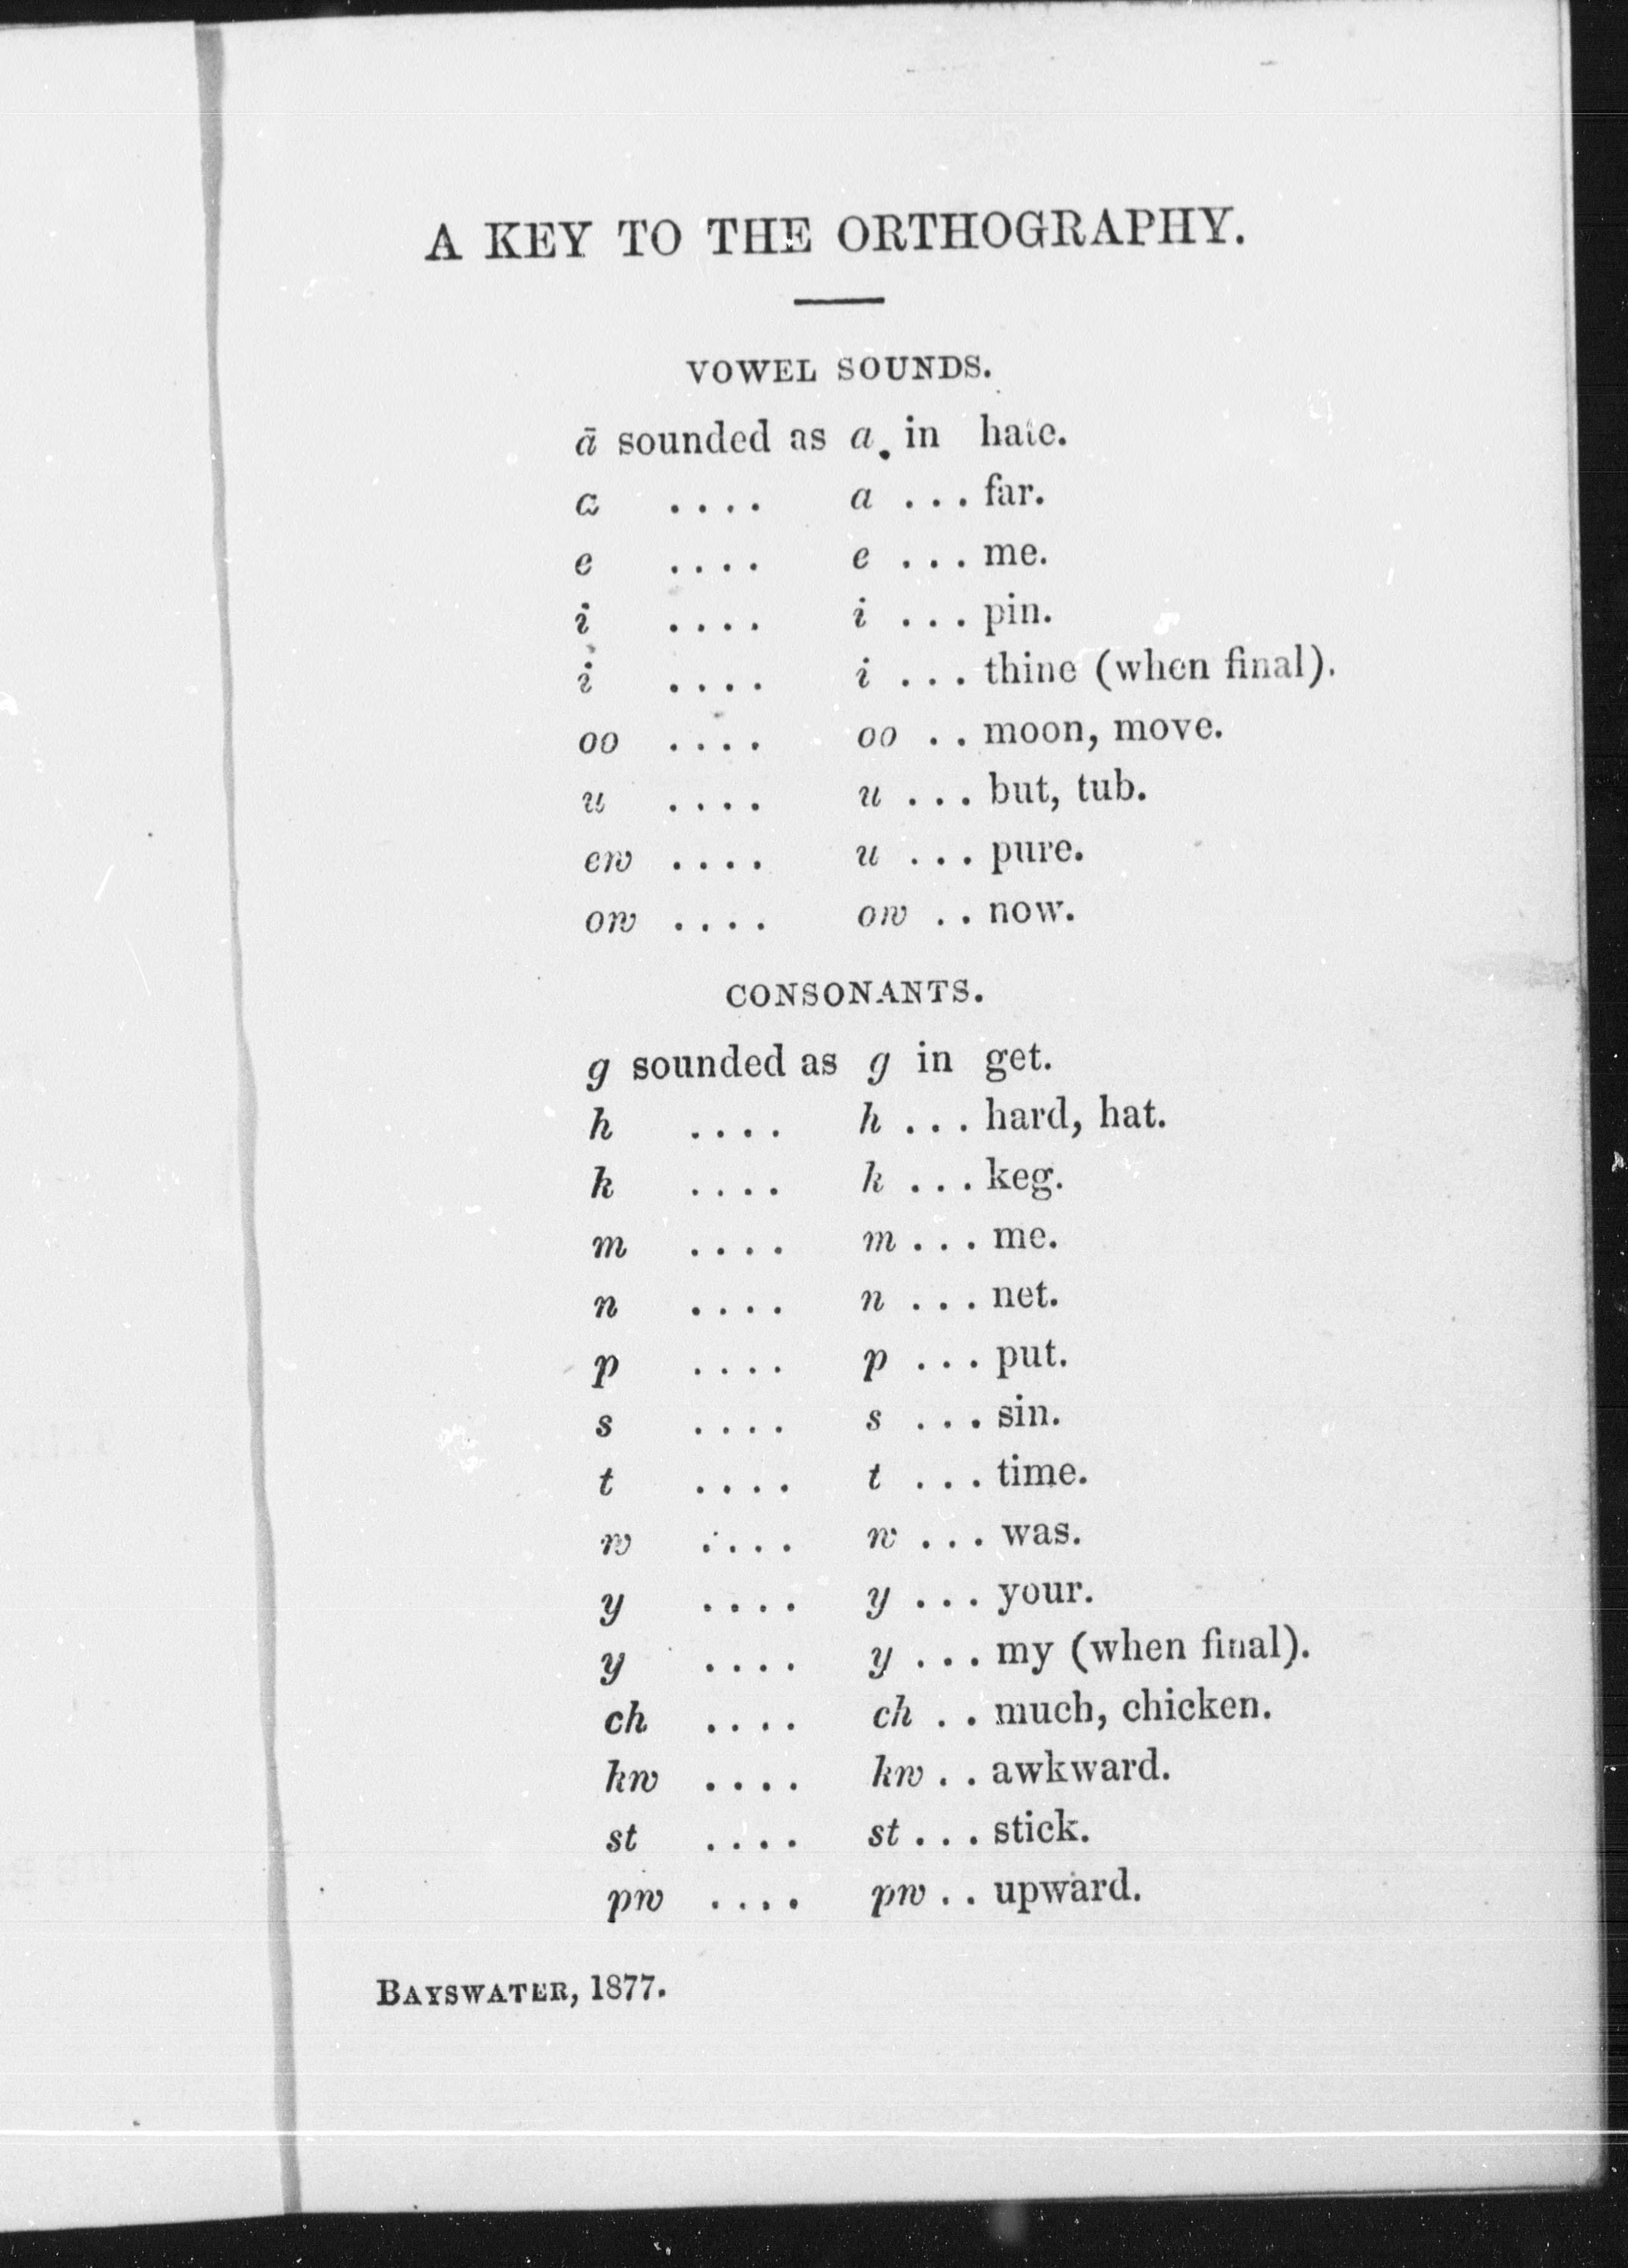 A KEY TO THE ORTHOGRAPHY.
VOWEL SOUNDS.
ā sounded as a in hate.
a .... a ... far.
e .... e ... me.
i .... i ... pin.
i .... i ... thine (when final).
oo .... oo .. moon, move.
u .... u ... but, tub.
ew .... u ... pure.
ow .... ow .. now.
CONSONANTS.
g sounded as g in get.
h .... h ... hard, hat.
k .... k ... keg.
m .... m ... me.
n .... n ... net.
p .... p ... put.
s .... s ... sin.
t .... t ... time.
w .... w ... was.
y .... y ... your.
y .... y ... my (when final).
ch .... ch .. much, chicken.
kw .... kw .. awkward.
st .... st ... stick.
pw .... pw .. upward.
BAYSWATER, 1877.